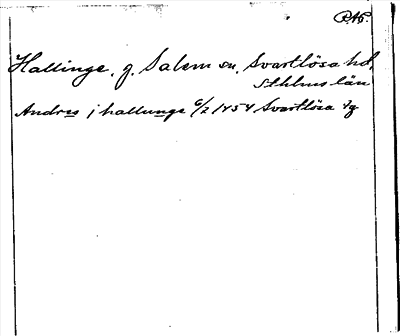 P.N.
Hallinge, g. Salem sn, Svartlösa hd,
Sthlms län
Andres j hallunge 6/2 1454 Svartlösa tg